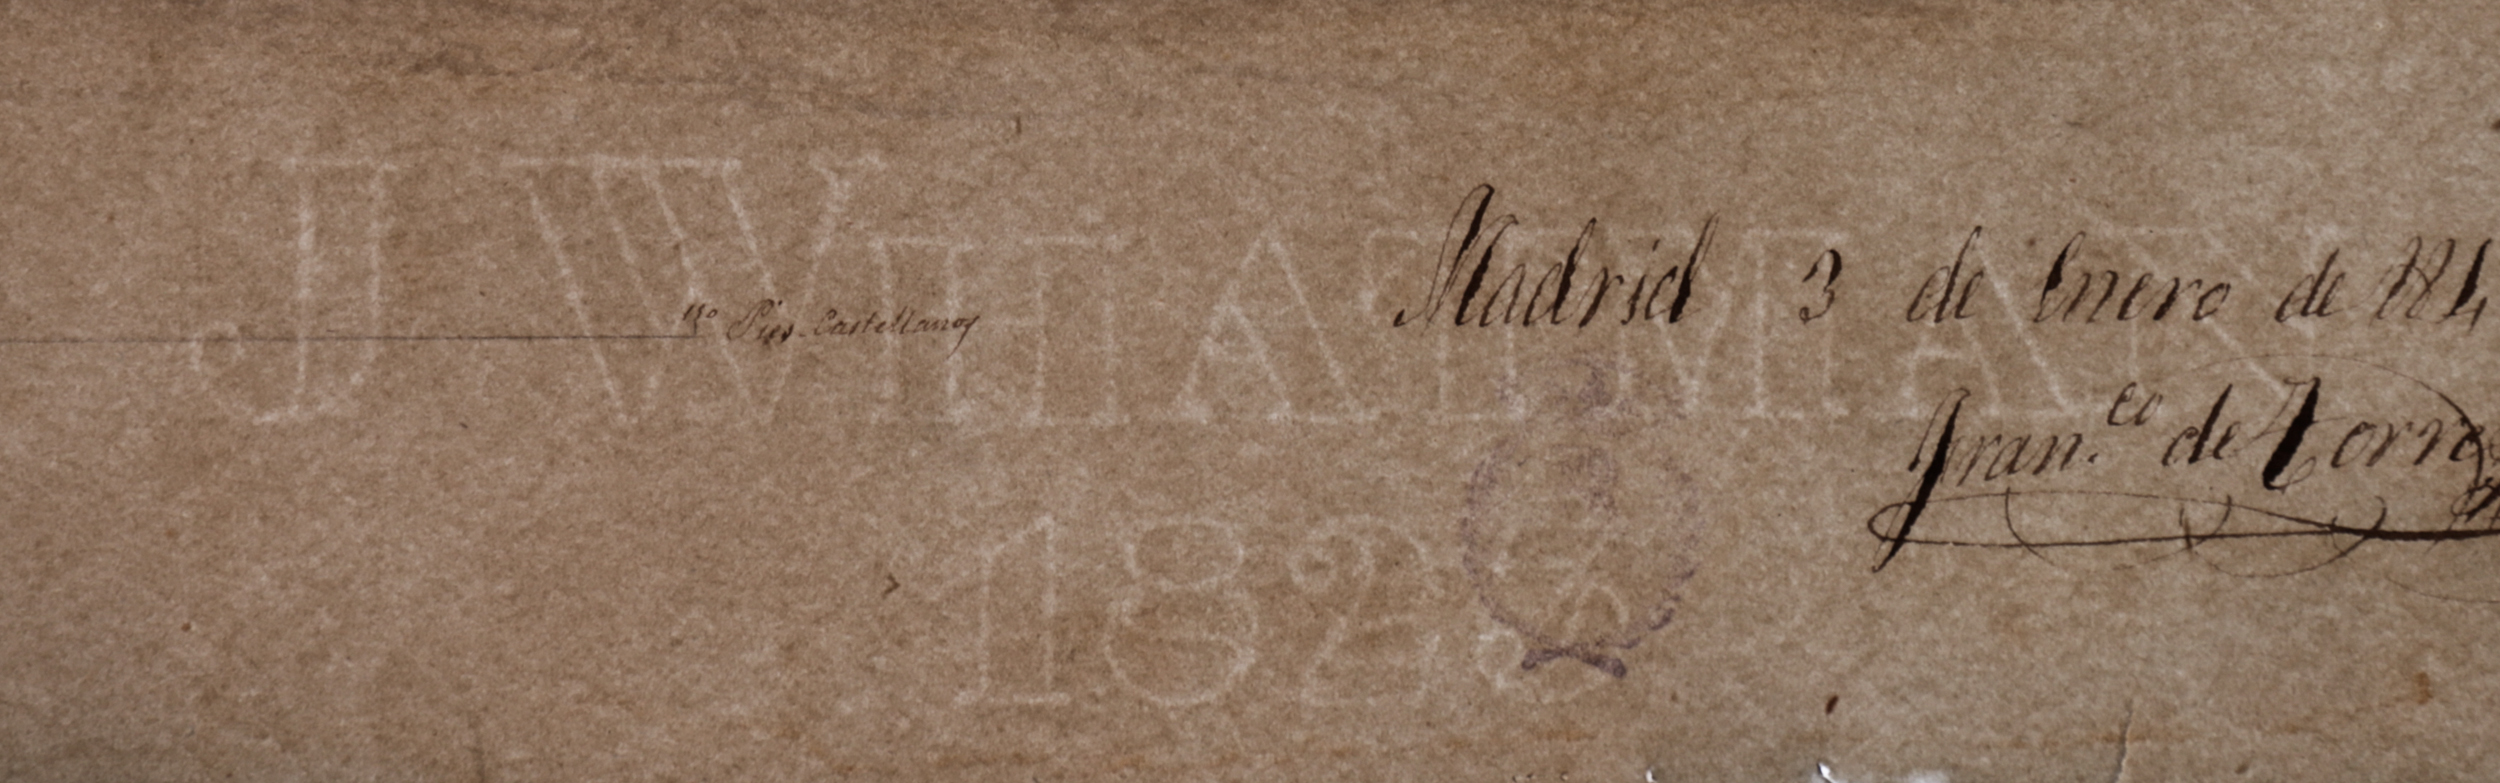 J WHATMAN
150 Pies Castellanos
Madrid 3 de Enero de 184
Fran.co de Torre